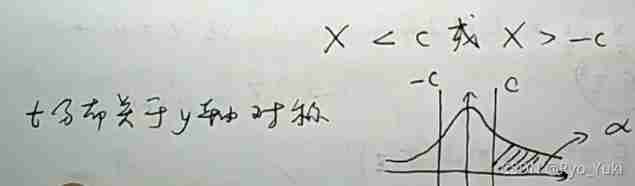 X < c 或 X > -c
-c c
t分布关于y轴对称
α
CSDN @Ryo_Yuki